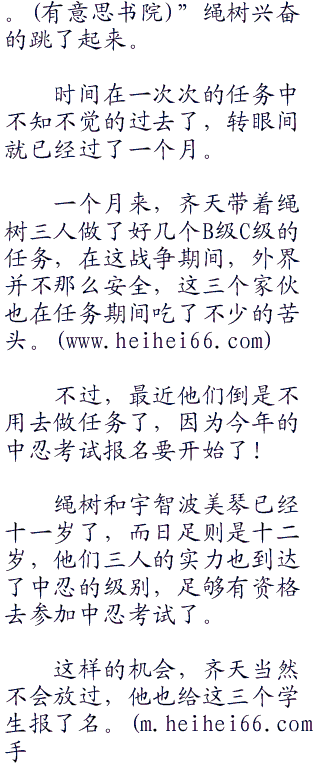 。(有意思书院)”绳树兴奋
的跳了起来。
时间在一次次的任务中
不知不觉的过去了，转眼间
就已经过了一个月。
一个月来，齐天带着绳
树三人做了好几个B级C级的
任务，在这战争期间，外界
并不那么安全，这三个家伙
也在任务期间吃了不少的苦
头。(www.heihei66.com)
不过，最近他们倒是不
用去做任务了，因为今年的
中忍考试报名要开始了！
绳树和宇智波美琴已经
十一岁了，而日足则是十二
岁，他们三人的实力也到达
了中忍的级别，足够有资格
去参加中忍考试了。
这样的机会，齐天当然
不会放过，他也给这三个学
生报了名。(m.heihei66.com
手